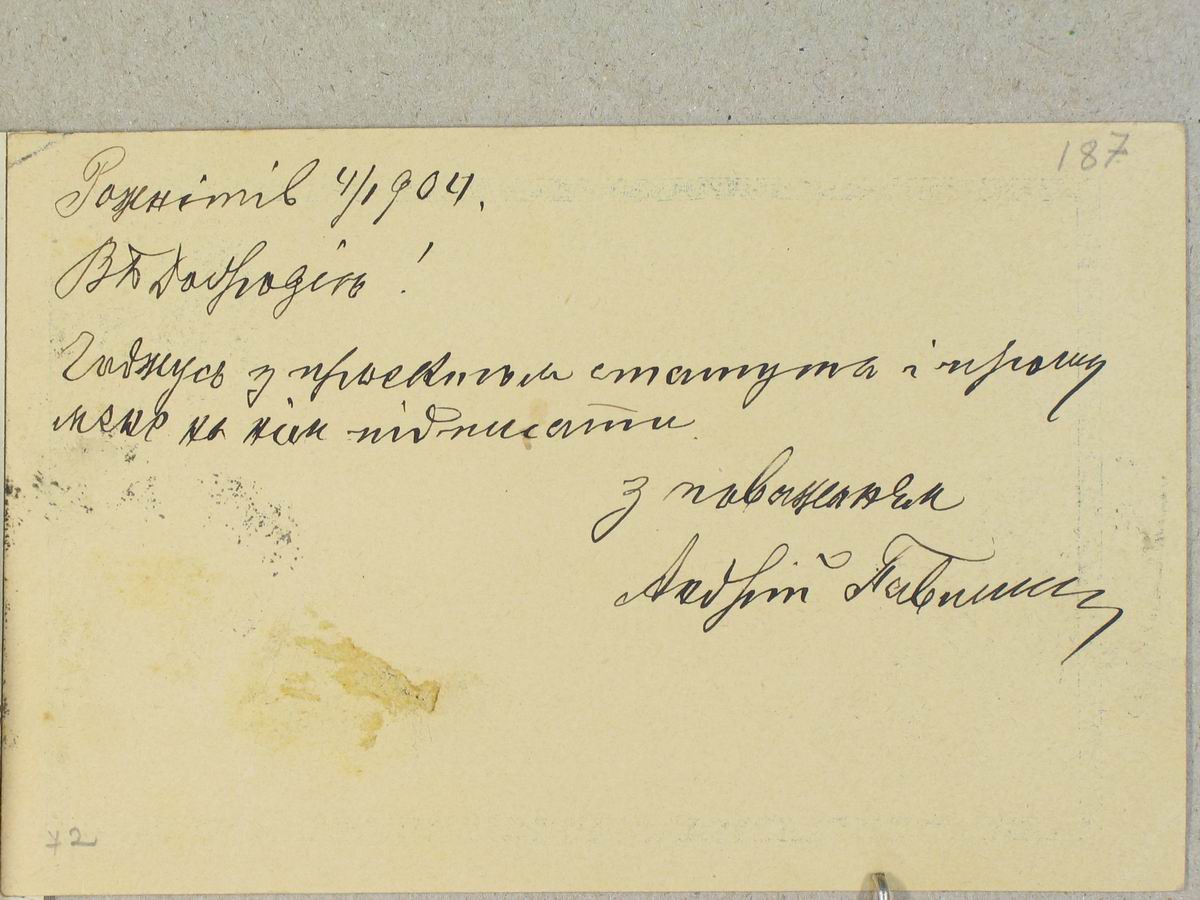 187
Рожнітів 4/1904.
ВП Добродію!
Годжусь з проєктом статута і прошу
мене на нім підписати
з поважанєм
Андрій
72